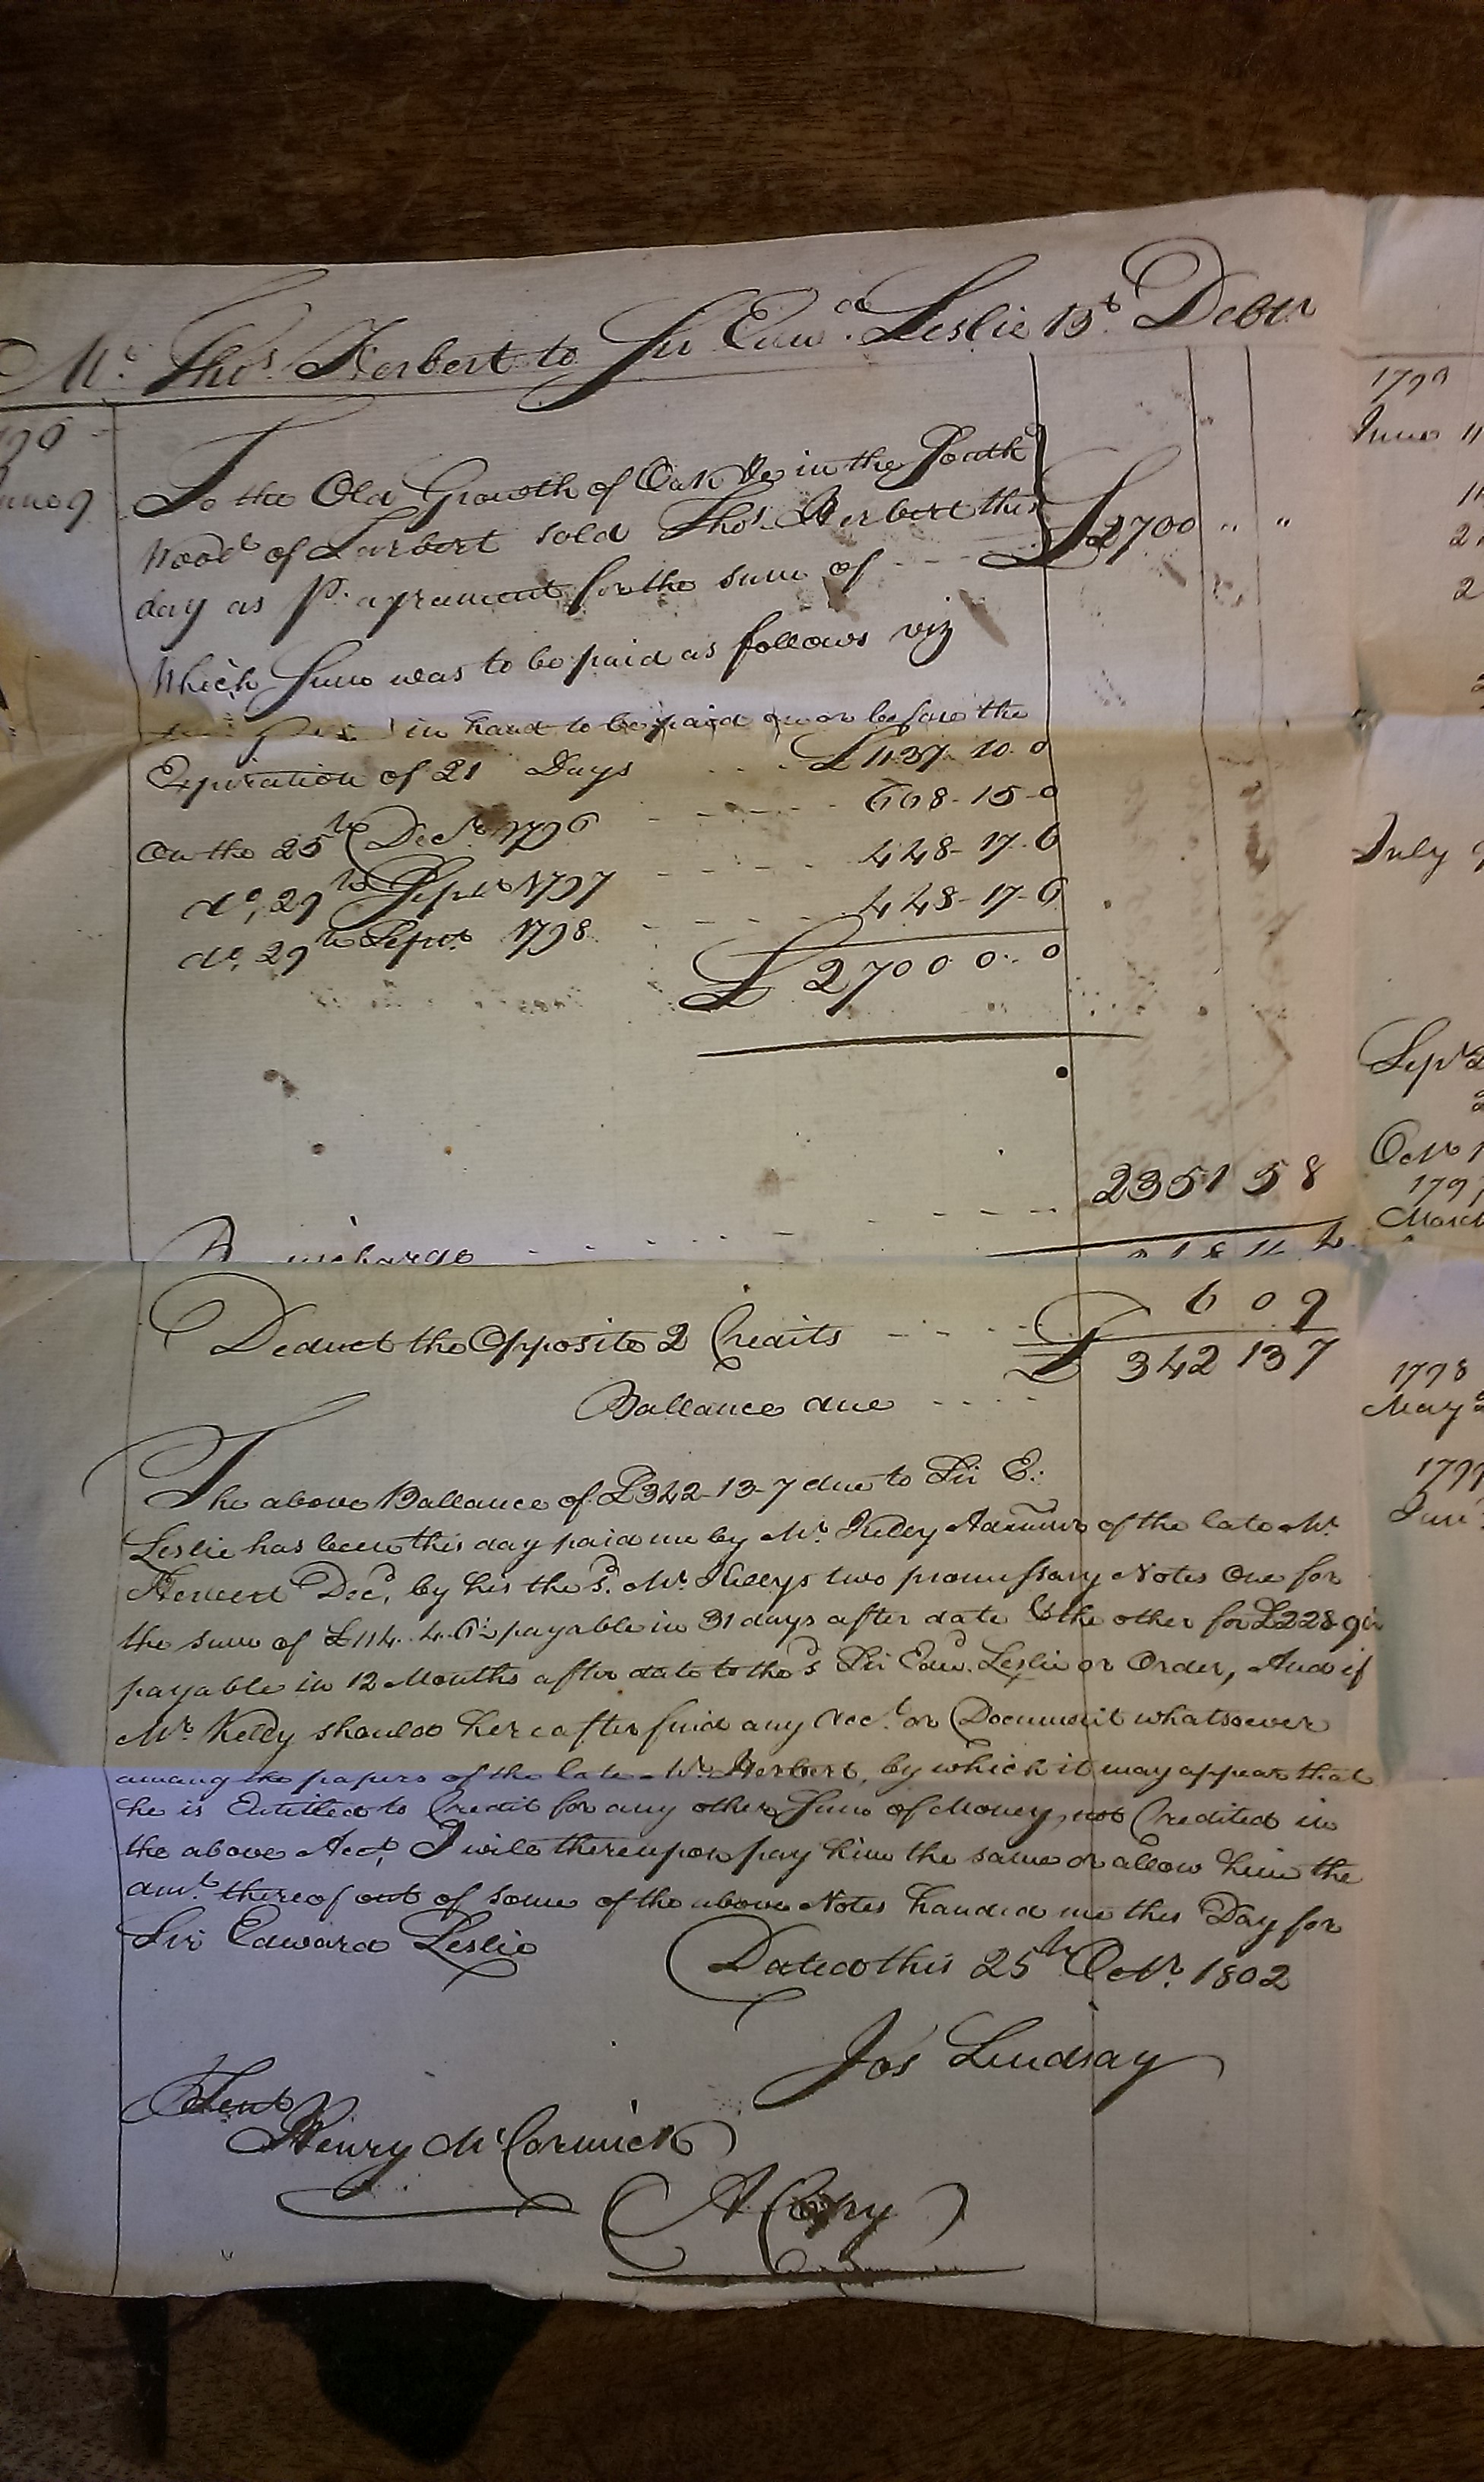 Mr. Thos. Herbert to Sir Edwd. Leslie Bt. Debtr
1796
June 9
To the Old Growth of Oak &c in the South
Wood of Tarbert sold Thos. Herbert this
day as Pr. agreement for the sum of - - - £2700 " "
Which Sum was to be paid as follows viz
in hand to be paid on or before the
Expiration of 21 Days . . . £1137- 10- 0
On the 25th Decr. 1796 - - - - 668- 15- 0
do. 29th Septr. 1797 - - - - 448- 17- 6
do. 29th Septr. 1798 - - - - 448- 17- 6
£ 2700 0 - 0
2351 5 8
Deduct the Opposite 2 Credits - - - - 6 0 9
Ballance due - - - - £ 342 13 7
The above Ballance of £342- 13- 7 due to Sir E:
Leslie has been this day paid me by Mr. Kelly Adminr of the late Mr.
Herbert Decd. by his the sd. Mr. Kellys two promissary Notes One for
the sum of £114. 4. 6½ payable in 31 days after date & the other for £228. 9
payable in 12 Months after date to the sd Sir Edwd. Leslie or Order, And if
Mr. Kelly should hereafter find any Rect. or Document whatsoever
among the papers of the late Mr. Herbert, by which it may appear that
he is Entitled to Credit for any other Sum of Money not Credited in
the above Acct. I will thereupon pay him the same or allow him the
amt. thereof out of some of the above Notes handed me this Day for
Sir Edward Leslie
Dated this 25th Octr. 1802
Jos Lindsay
Henry McCormick
A Copy
1796
June 11
July 9
Sept 2
Octr 1
1797
March
1798
May
1799